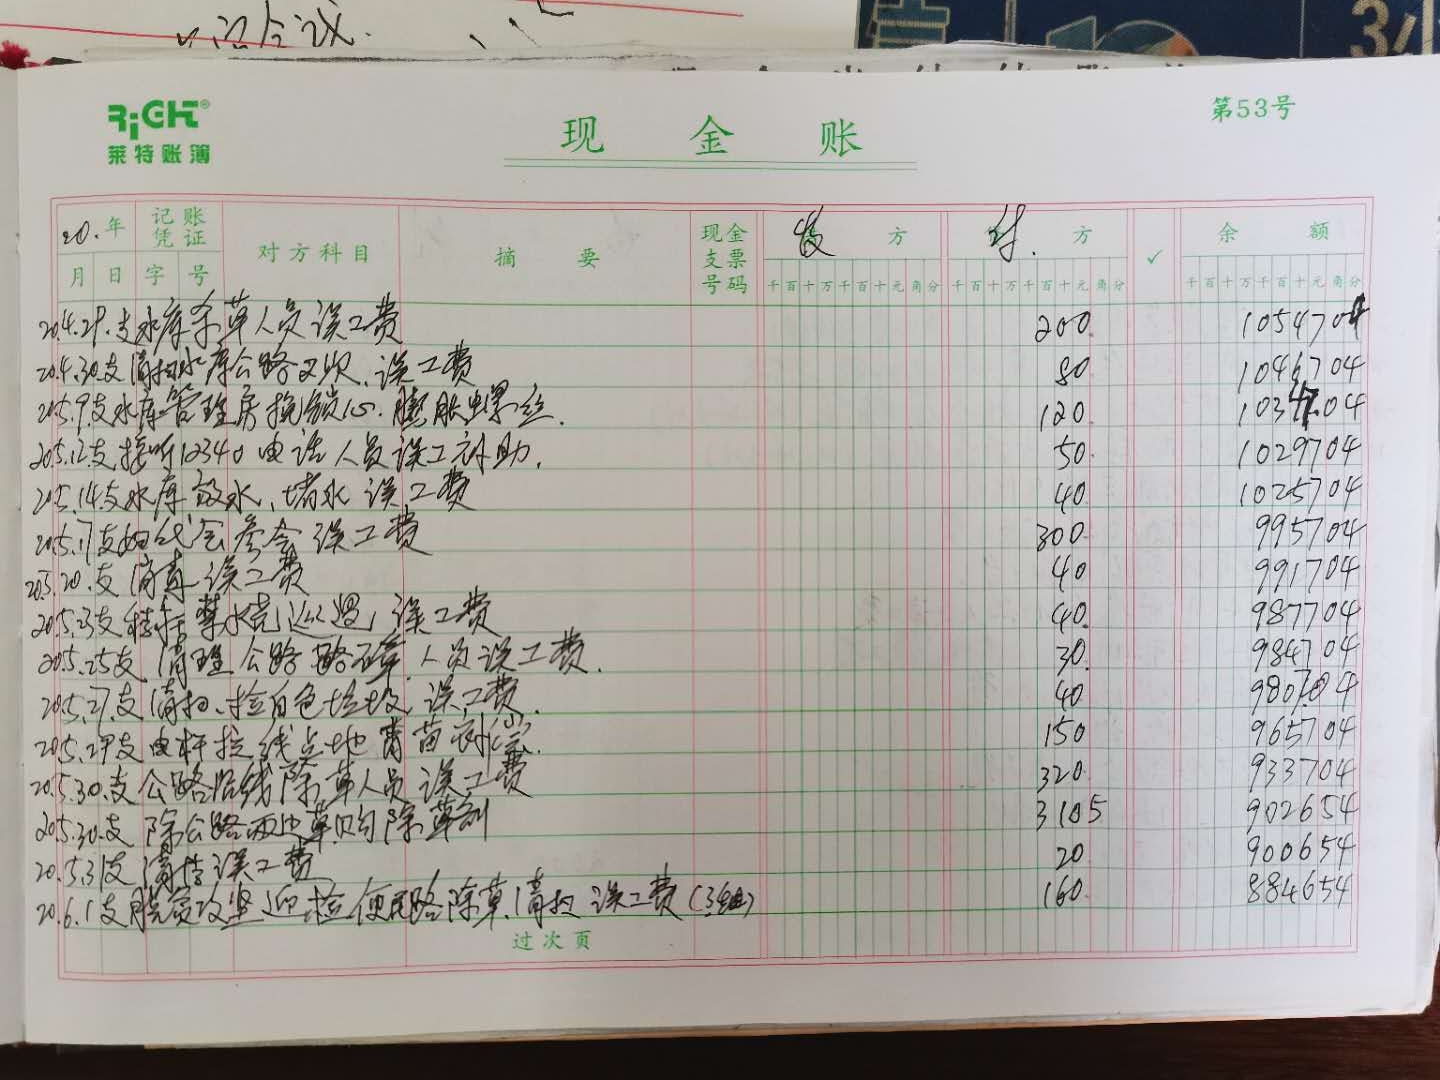 记会议.
3小
第53号
RiGHT®
莱特账簿
现 金 账
20.年 记账凭证 对方科目 摘 要 现金支票号码 收 方 付. 方 ✓ 余 额
月 日 字 号 千百十万千百十元角分 千百十万千百十元角分 千百十万千百十元角分
20.4.29.支水库杀草人员误工费 200. 1054704
20.4.30.支清扫水库公路又坝、误工费 80 1046704
20.5.9.支水库管理房换锁心.膨胀螺丝. 120 1034704
20.5.12.支接听12340电话人员误工补助. 50. 1029704
20.5.14.支水库放水、堵水误工费 40 1025704
20.5.17支妇代会参会误工费 300 995704
20.5.20.支 清毒误工费 40 991704
20.5.23支 误工费 40. 987704
20.5.25支 清理公路路障.人员误工费. 30. 984704
20.5.27.支清扫、捡白色垃圾误工费. 40 980704
20.5.29支电杆拉线占地青苗补偿. 150 965704
20.5.30.支公路沿线除草人员误工费 320. 933704
20.5.30.支 除公路两边草购除草剂 3105 902654
20.5.31支 误工费 20 900654
20.6.1支脱贫攻坚迎检便民路除草.清扫误工费(3组) 160. 884654
过次页